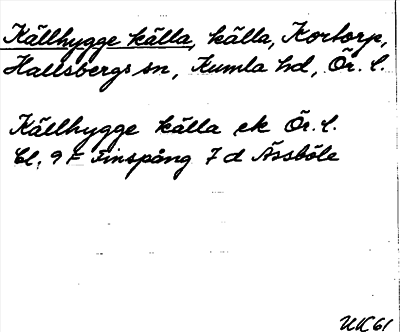 Källhygge källa, källa, Kortorp,
Hallsbergs sn, Kumla hd, Ör. l.
Källhygge källa ek Ör. l.
bl. 9 F Finspång 7 d Åsböle
UK 61